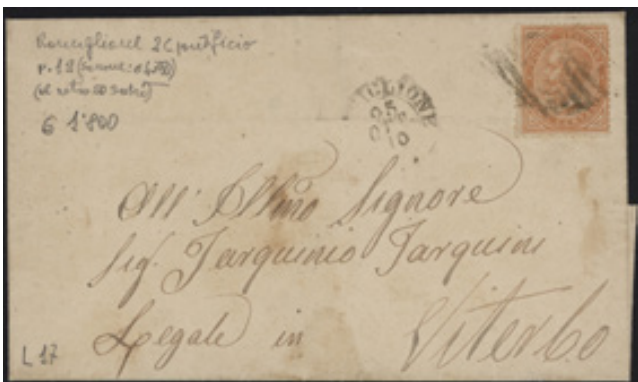 Ronciglione 2C pontificio
p. 12
6 1'800
IGLIONE
25
10
All' Illmo Signore
Sig. Tarquinio Tarquini
Legale in Viterbo
L 17